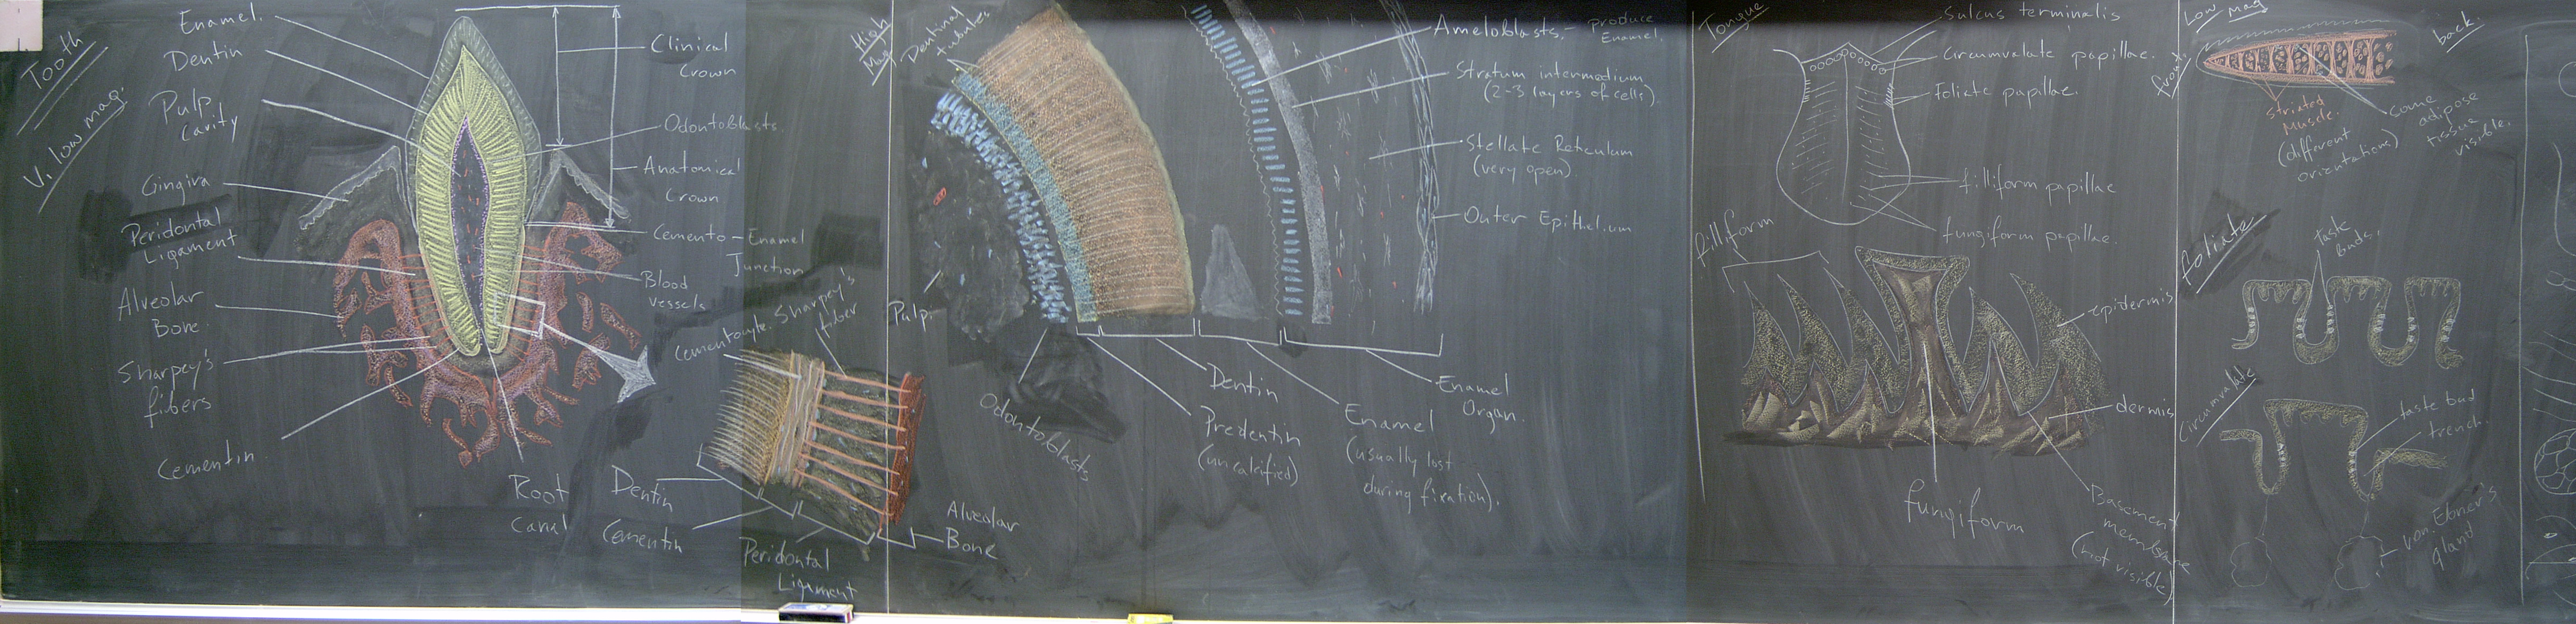 Tooth
V. low mag.
Enamel.
Dentin
Pulp
Cavity
Gingiva
Peridontal
Ligament
Alveolar
Bone.
Sharpey's
fibers
Cementin.
Clinical
Crown
Odontoblasts.
Anatomical
Crown
Cemento - Enamel
Junction
Blood
vessels
Root
Canal
Cementocyte.
Sharpey's
fiber
Dentin
Cementin
Peridontal
Ligament
Alveolar
Bone
High
Mag
Dentinal
tubules
Pulp.
Odontoblasts
Predentin
(uncalcified)
Dentin
Enamel
(usually lost
during fixation).
Enamel
Organ.
Ameloblasts, - produce
Enamel.
Stratum intermedium
(2-3 layers of cells).
Stellate Reticulum
(very open)
Outer Epithelium
Tongue
Sulcus terminalis
Circumvalate papillae.
Foliate papillae.
filliform papillae
fungiform papillae.
filliform
epidermis
dermis
fungiform
Basement
membrane
(not visible)
Low mag
front
back.
Striated
Muscle.
(different
orientations)
some
adipose
tissue
visible.
foliate
taste
buds.
Circumvalate
taste bud
trench.
von. Ebner's
gland